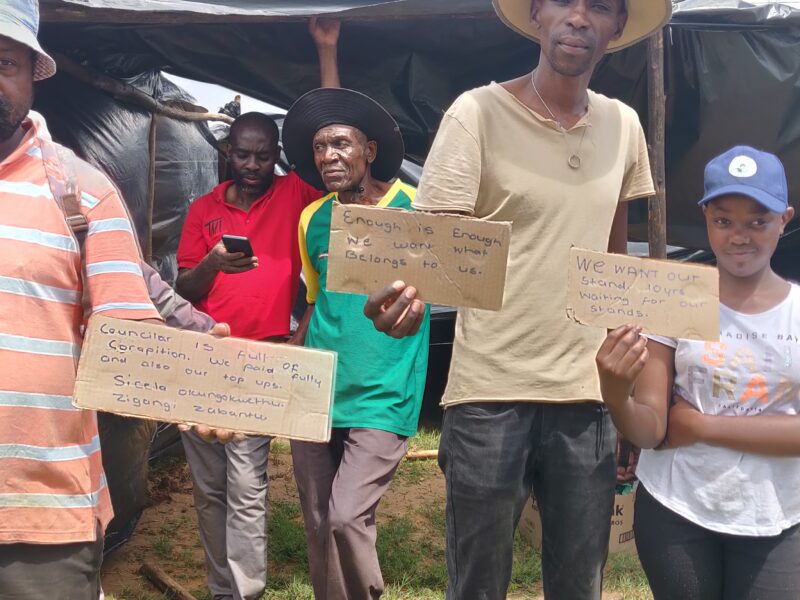 Enough is Enough
We want what
Belongs to us.
WE WANT OUR
Stand 10yrs
waiting for our
stands.
Councilor Is full of
Corapition. We paid fully
and also our top ups.
Sicela okungokwethu
Zigangi zabantu